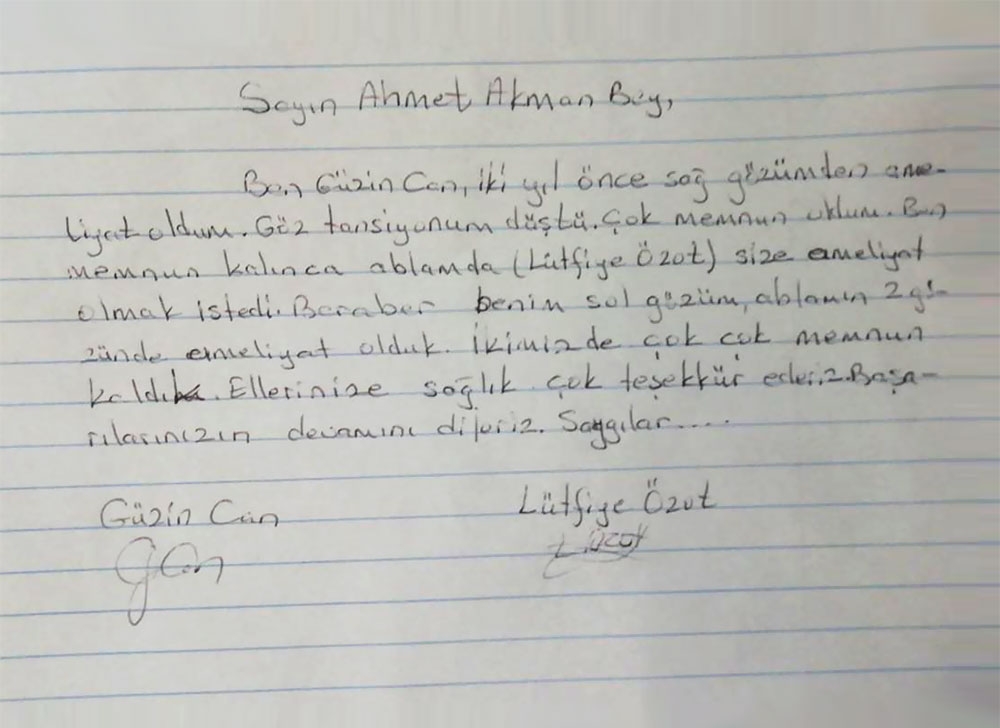 Sayın Ahmet Akman Bey,
Ben Güzin Can, iki yıl önce sağ gözümden ame-
liyat oldum. Göz tansiyonum düştü. Çok memnun oldum. Ben
memnun kalınca ablamda (Lütfiye Özot) size ameliyat
olmak istedi. Beraber benim sol gözüm, ablamın 2 gö-
zünde ameliyat olduk. İkimizde çok çok memnun
kaldık. Ellerinize sağlık çok teşekkür ederiz. Başa-
rılarınızın devamını dileriz. Saygılar....
Güzin Can
Lütfiye Özot
GCan